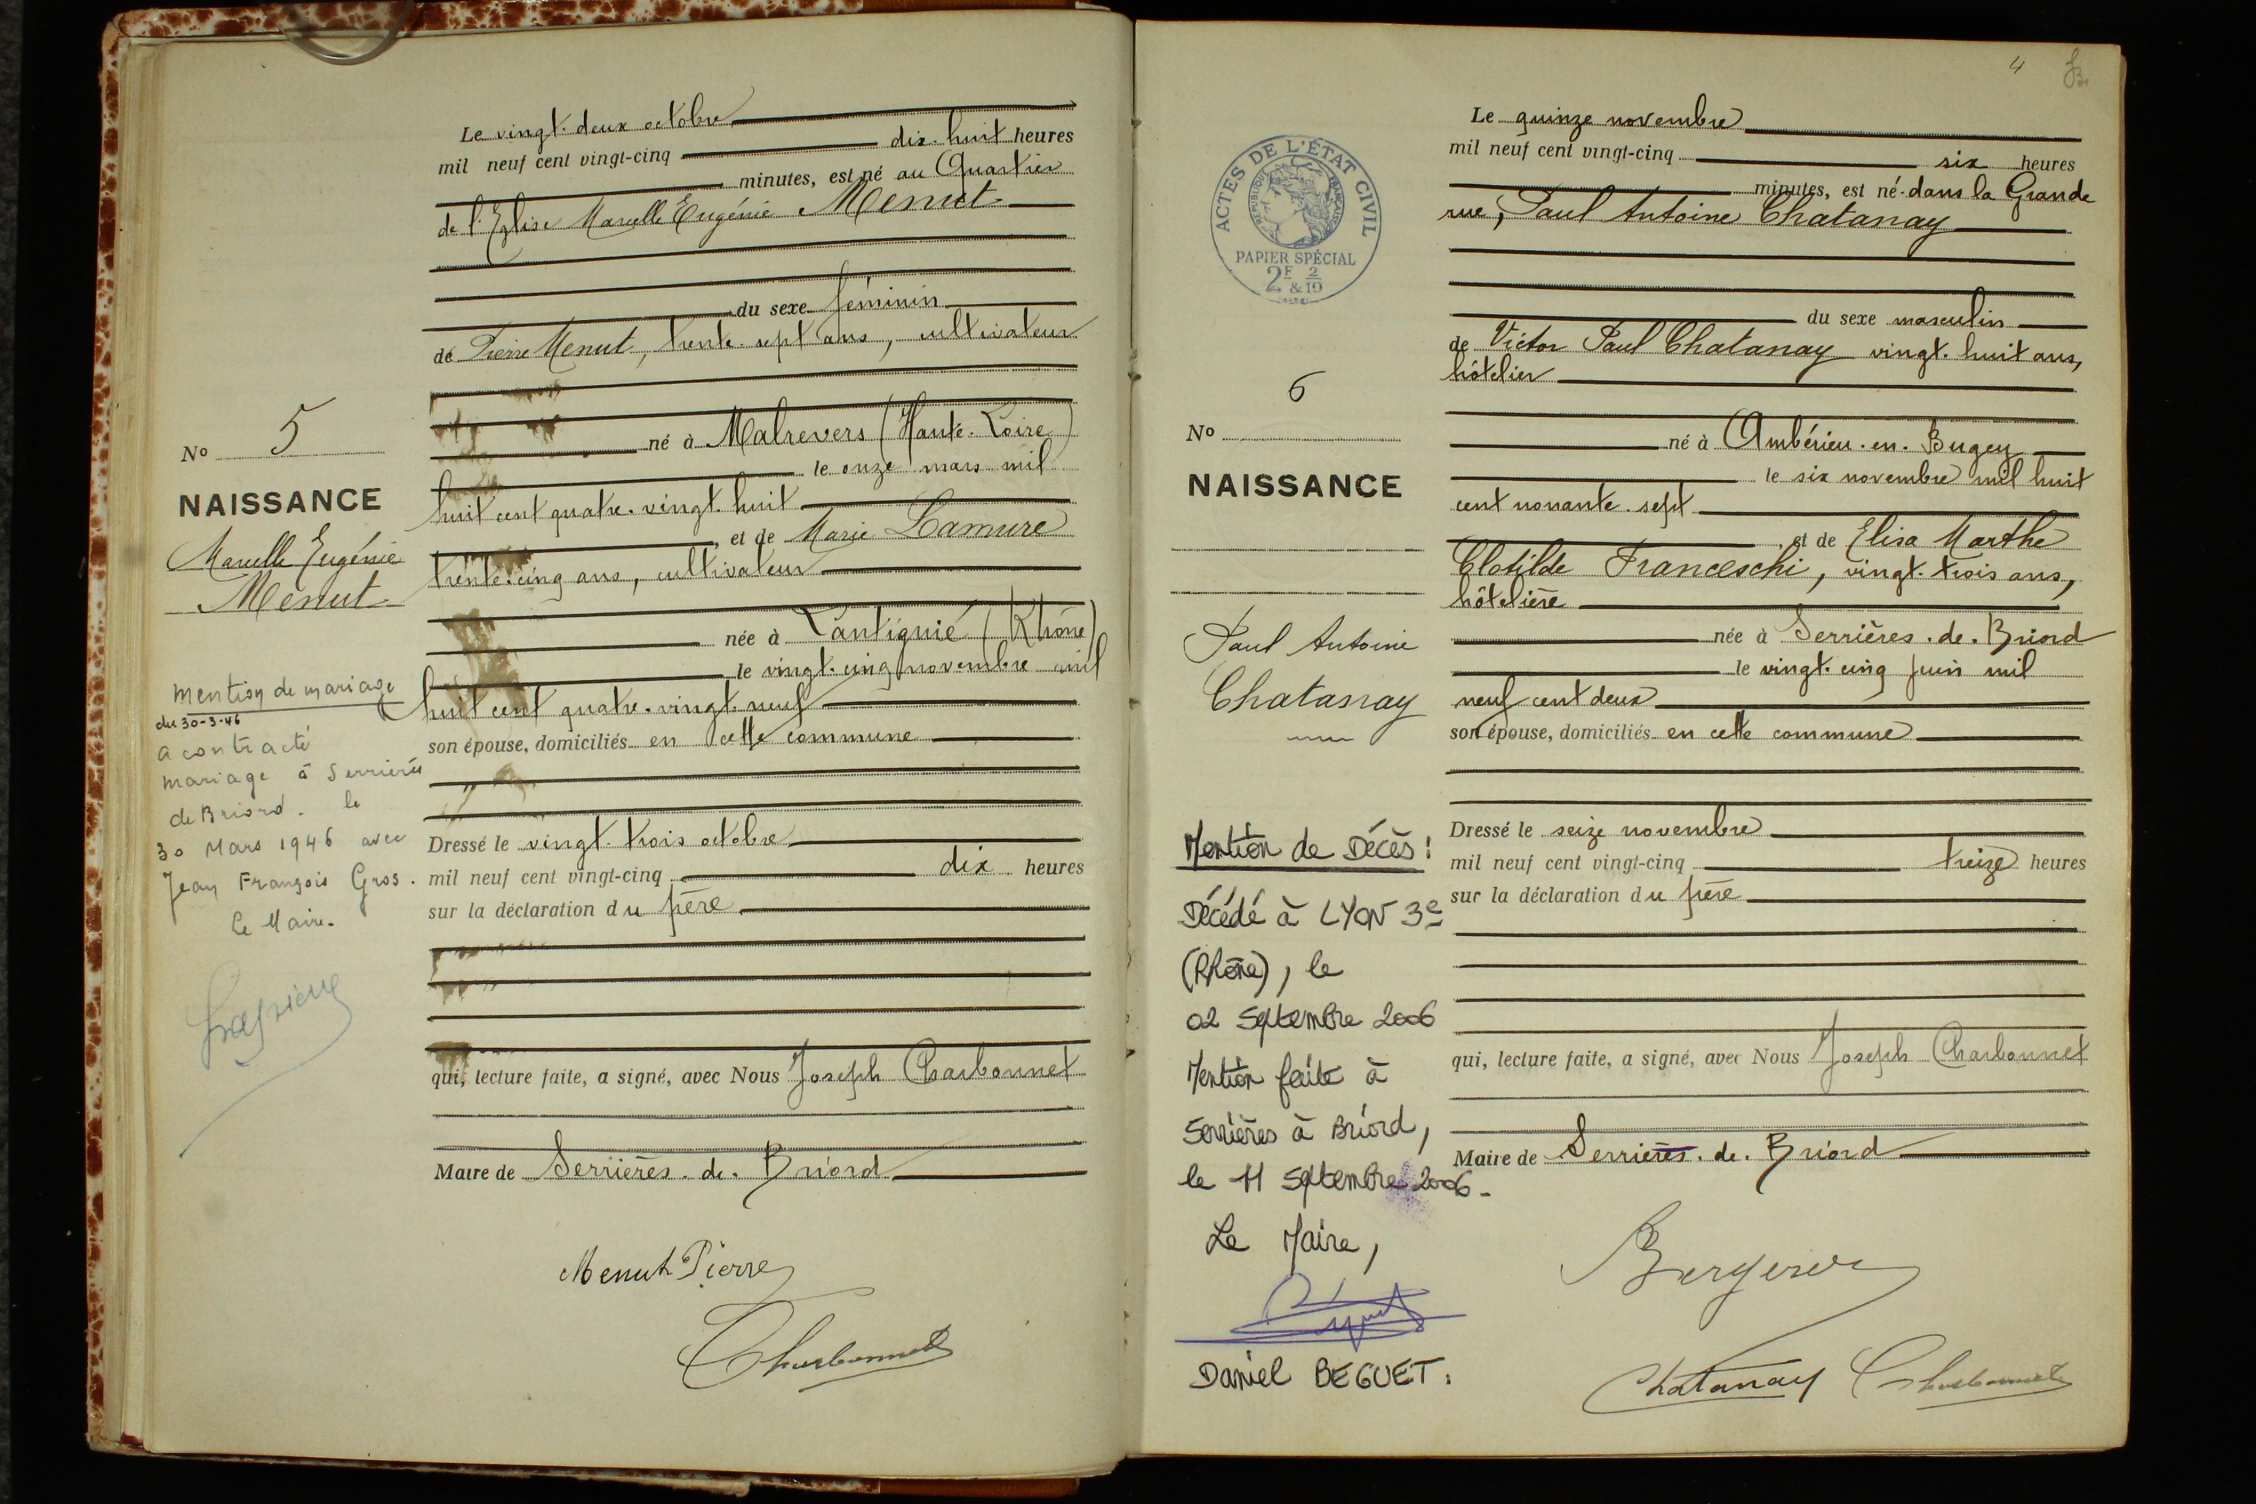 Le vingt-deux octobre
mil neuf cent vingt-cinq dix-huit heures
minutes, est né au Quartier
de l'Eglise Marcelle Eugénie Menut
du sexe féminin
de Pierre Menut, trente-sept ans, cultivateur
né à Malrevers (Haute-Loire)
le onze mars mil
huit cent quatre-vingt-huit
et de Marie Lamure
trente-cinq ans, cultivateur
née à Lantignié (Rhône)
le vingt-cinq novembre mil
huit cent quatre-vingt-neuf
son épouse, domiciliés en cette commune
Dressé le vingt-trois octobre
mil neuf cent vingt-cinq dix heures
sur la déclaration du père
qui, lecture faite, a signé, avec Nous Joseph Charbonnet
Maire de Serrières-de-Briord
Menut Pierre
Charbonnet
No 5
NAISSANCE
Marcelle Eugénie
Menut
Mention de mariage
du 30-3-46
a contracté
mariage à Serrières
de Briord. le
30 Mars 1946 avec
Jean François Gros.
Le Maire.
4
ACTES DE L'ÉTAT CIVIL
RÉPUBLIQUE FRANÇAISE
PAPIER SPÉCIAL
2F & 2/10
Le quinze novembre
mil neuf cent vingt-cinq six heures
minutes, est né dans la Grande
rue, Paul Antoine Chatanay
du sexe masculin
de Victor Paul Chatanay vingt-huit ans,
hôtelier
né à Ambérieu-en-Bugey
le six novembre mil huit
cent nonante-sept
et de Elisa Marthe
Clotilde Franceschi, vingt-trois ans,
hôtelière
née à Serrières-de-Briord
le vingt-cinq juin mil
neuf cent deux
son épouse, domiciliés en cette commune
Dressé le seize novembre
mil neuf cent vingt-cinq treize heures
sur la déclaration du père
qui, lecture faite, a signé, avec Nous Joseph Charbonnet
Maire de Serrières-de-Briord
Chatanay Charbonnet
No 6
NAISSANCE
Paul Antoine
Chatanay
Mention de Décès:
Décédé à LYON 3e
(Rhône), le
02 Septembre 2006
Mention faite à
Serrières à Briord,
le 11 Septembre 2006-
Le Maire,
Daniel BEGUET.